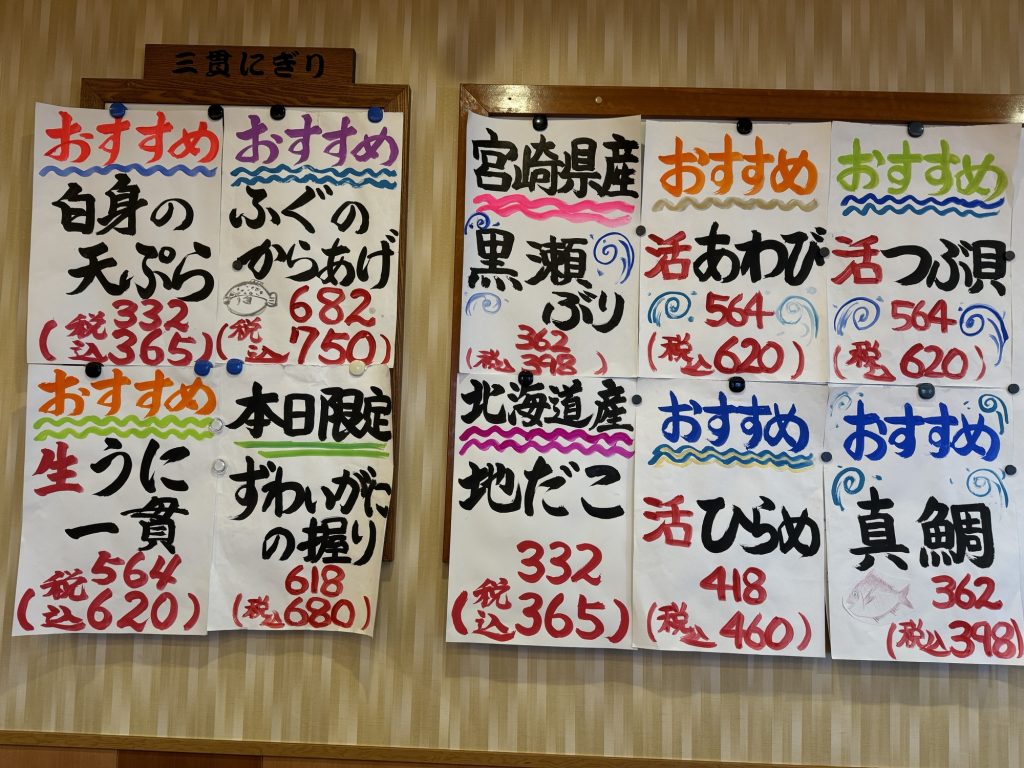 三貫にぎり
おすすめ
白身の
天ぷら
332
(税込365)
おすすめ
ふぐの
からあげ
682
(税込750)
おすすめ
生うに
一貫
564
(税込620)
本日限定
ずわいがに
の握り
618
(税込680)
宮崎県産
黒瀬
ぶり
362
(税込398)
おすすめ
活あわび
564
(税込620)
おすすめ
活つぶ貝
564
(税込620)
北海道産
地だこ
332
(税込365)
おすすめ
活ひらめ
418
(税込460)
おすすめ
真鯛
362
(税込398)